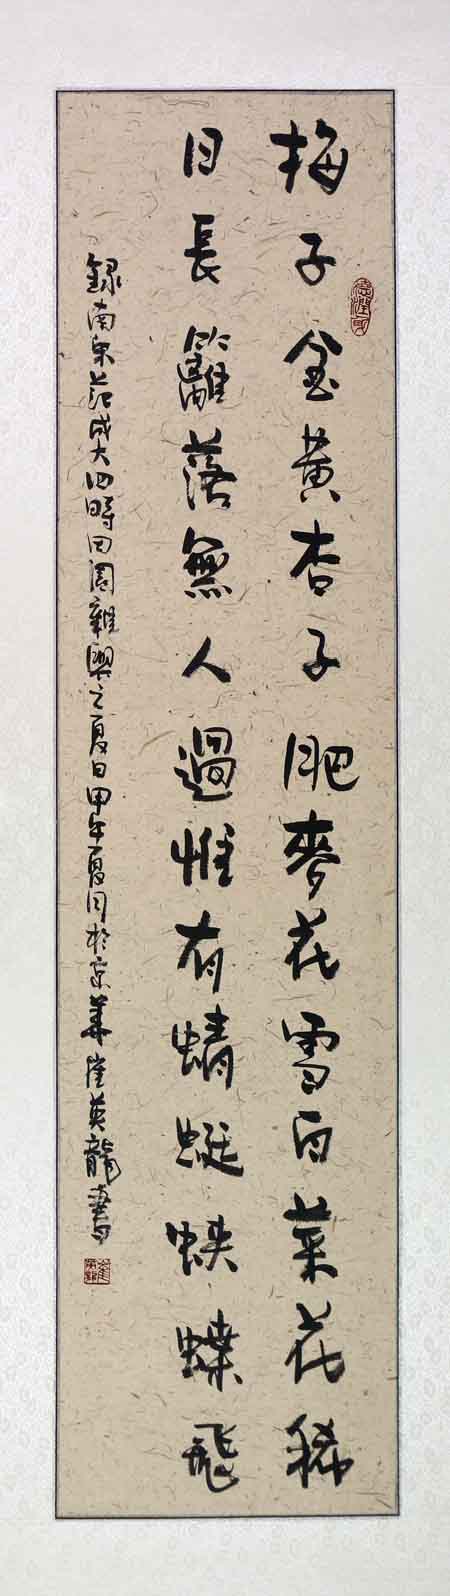 梅子金黃杏子肥麥花雪白菜花稀
日長籬落無人過惟有蜻蜓蛱蝶飛
録南宋范成大四時田園雜興之夏日甲午夏月於京華崔英龍書